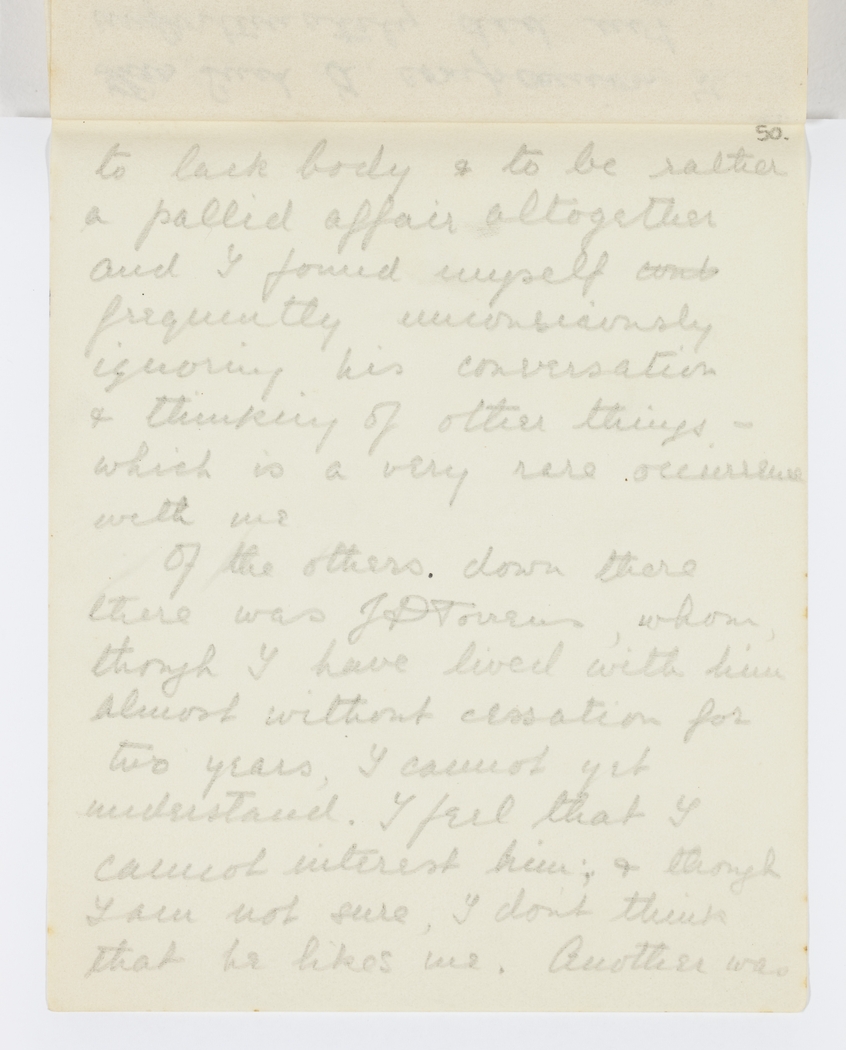 50.
to lack body & to be rather
a pallid affair altogether
and I found myself
frequently unconsciously
ignoring his conversation
& thinking of other things -
which is a very rare occurrence
with me
Of the others. down there
there was J D Torrens, whom,
though I have lived with him
almost without cessation for
two years, I cannot yet
understand. I feel that I
cannot interest him; & though
I am not sure, I don't think
that he likes me. Another was